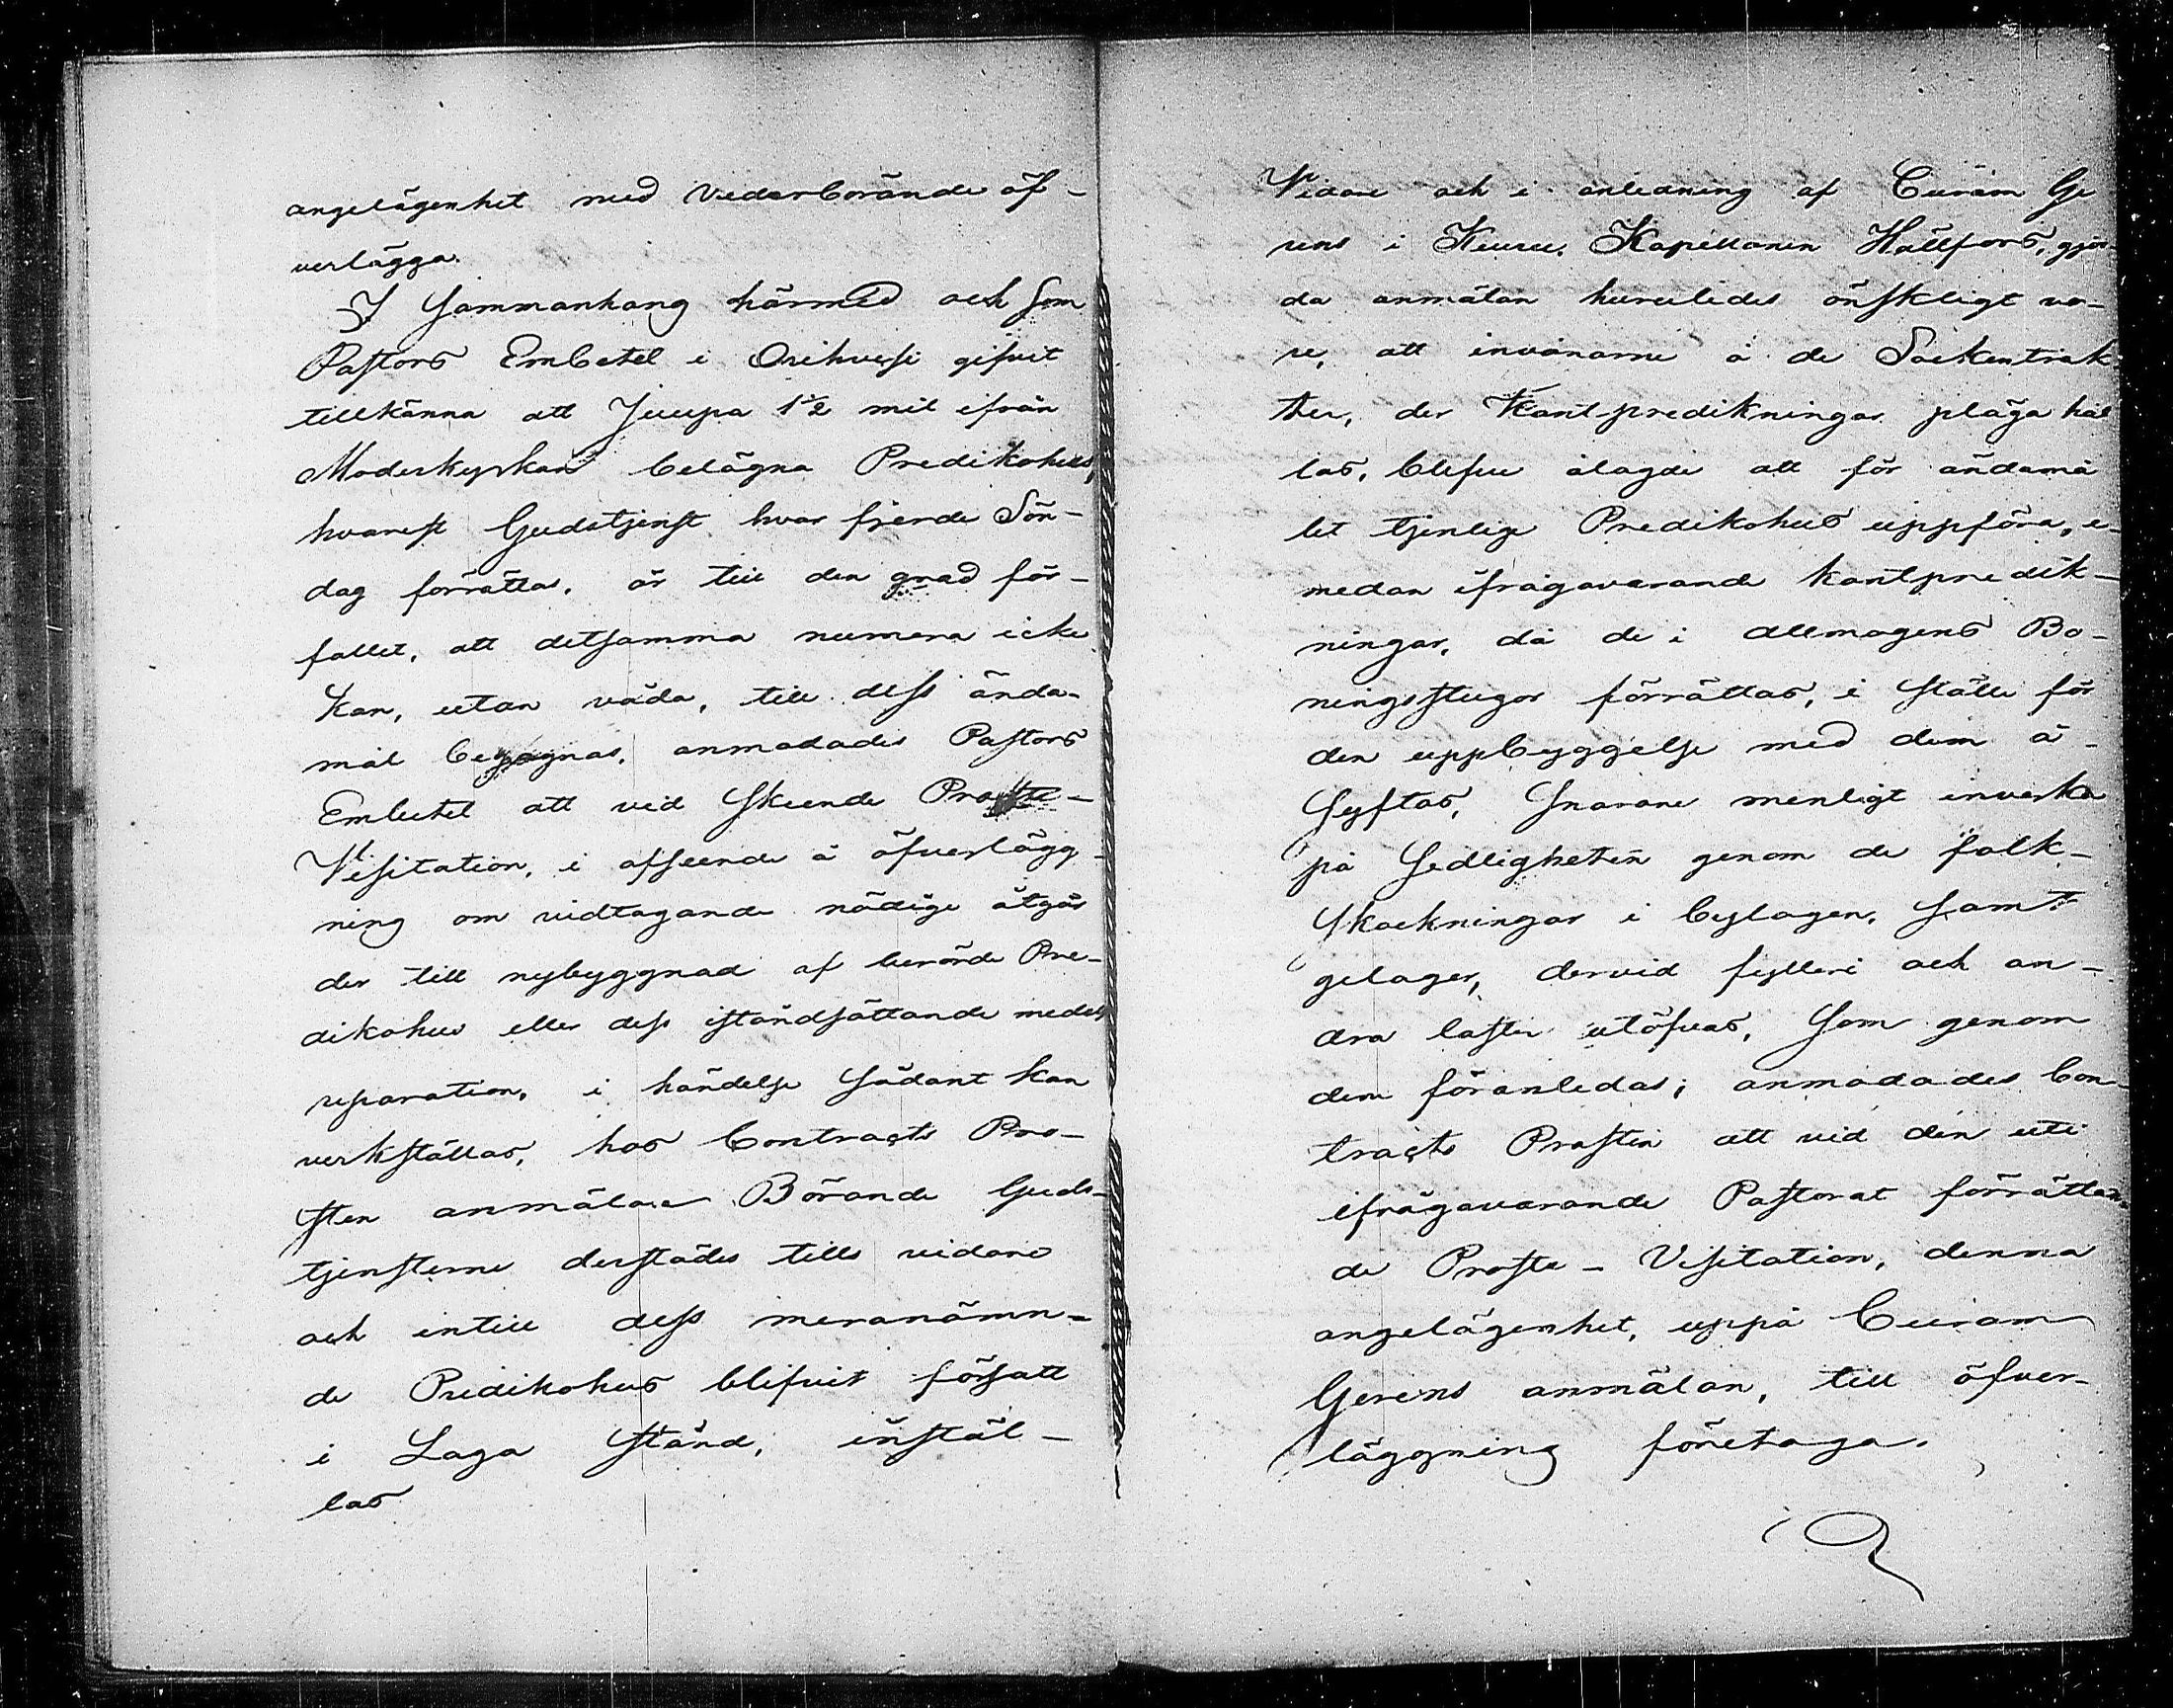 angelägenhet med vederbörande öf-
verlägga.
I Sammanhang härmed och som
Pastors Embetet i Orihvesi gifvit
tillkänna att Juupa 1 1/2 mil ifrån
Moderkyrkan belägna Predikohus,
hvarest Gudstjenst hvar fjerde Sön-
dag förrättas, är till den grad för-
fallet, att detsamma numera icke
kan, utan våda, till dess ända-
mål begagnas, anmodades Pastors
Embetet att vid skeende Proste-
Visitation, i afseende å öfverlägg-
ning om vidtagande nödige åtgär
der till nybyggnad af berörde Pre-
dikohus eller dess iståndsättande medelst
reparation, i händelse sådant kan
verkställas, hos Contracts Pro-
sten anmälan Börande Guds-
tjensterne derstädes tills vidare
och intill dess meranämn-
de Predikohus blifvit försatt
i Laga stånd, instäl-
las
Vidare och i anledning af Curam Ge
rens i Keuru, Kapellanen Hällfors, gjor
da anmälan huruledes önskligt vo-
re, att invånarne å de Sockentrak
ter, der Kantpredikningar pläga hål
las, blefve ålagde att för ändamå
let tjenlige Predikohus uppföra, e-
medan ifrågavarande kantpredik-
ningar, då de i allmogens Bo-
ningsstugor förrättas, i ställe för
den uppbyggelse med dem å-
syftas, snarare menligt inverka
på sedligheten genom de folk-
skockningar i bylagen, samt
gelager, dervid fylleri och an-
dra laster utöfvas, som genom
dem föranledas; anmodades Con-
tracts Prosten att vid den uti
ifrågavarande Pastorat förrättan
de Proste-Visitation, denna
angelägenhet, uppå Curam
Gerens anmälan, till öfver-
läggning företaga.